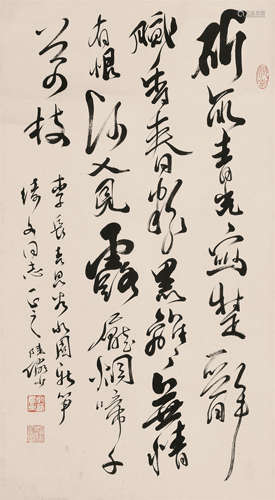 斫取青光寫楚辭
膩香春粉黑離離無情
有恨何人見露壓烟啼千
萬枝
李長吉昌谷北園新筍
同志正之 陸儼少